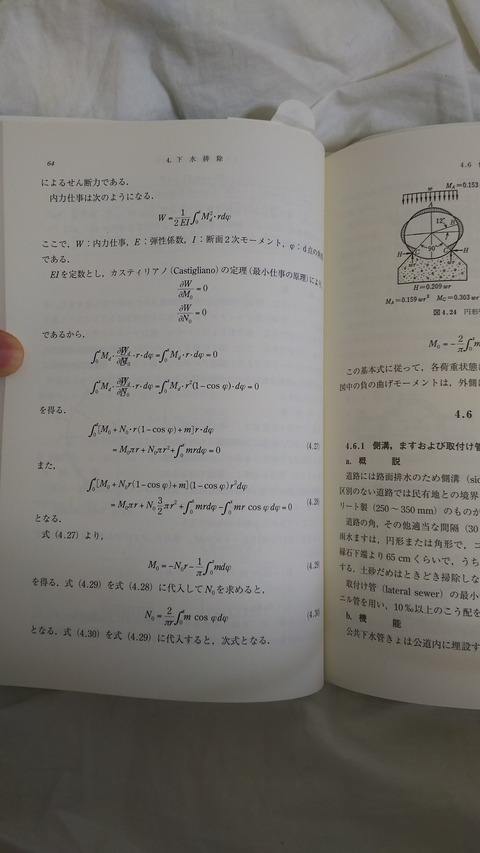 64
4. 下 水 排 除
によるせん断力である.
内力仕事は次のようになる.
W = 1/(2EI) ∫₀^π M_d²・rdφ
ここで, W：内力仕事, E：弾性係数, I：断面２次モーメント, φ：d点の角
である.
EIを定数とし, カスティリアノ(Castigliano)の定理(最小仕事の原理)により,
∂W/∂M₀ = 0
∂W/∂N₀ = 0
であるから,
を得る.
∫₀^π[M₀ + N₀・r(1−cos φ) + m]r・dφ
= M₀πr + N₀πr² + ∫₀^π mrdφ = 0 (4.27)
また,
∫₀^π[M₀ + N₀r(1−cos φ) + m](1−cos φ)r²dφ
= M₀πr + N₀ 3/2 πr² + ∫₀^π mrdφ − ∫₀^π mr cos φdφ = 0 (4.28)
となる.
式 (4.27) より,
M₀ = −N₀r − 1/π ∫₀^π mdφ (4.29
を得る. 式 (4.29) を式 (4.28) に代入してN₀を求めると,
N₀ = 2/πr ∫₀^π m cos φdφ (4.30
となる. 式 (4.30) を式 (4.29) に代入すると, 次式となる.
4.6
M_A=0.153
w
A
12°
H
90°
C
H=0.209wr
M_A=0.159 wr² M_C=0.303 wr
図 4.24 円形
M₀ = −2/π
この基本式に従って, 各荷重状態
図中の負の曲げモーメントは, 外側
4.6
4.6.1 側溝, ますおよび取付け管
a. 概 説
道路には路面排水のため側溝 (sid
区別のない道路では民有地との境界
リート製 (250〜350 mm) のものが
道路の角, その他適当な間隔 (30
雨水ますは, 円形または角形で, コ
縁石下端より65 cmくらいで, うち
する. 土砂だめはときどき掃除しな
取付け管 (lateral sewer) の最小
ニル管を用い, 10‰以上のこう配を
b. 機 能
公共下水管きょは公道内に埋設す